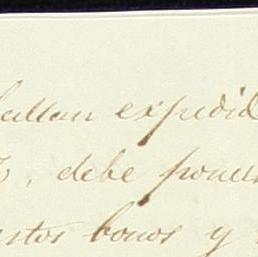 faltan expedid
, debe poners
estos bonos y